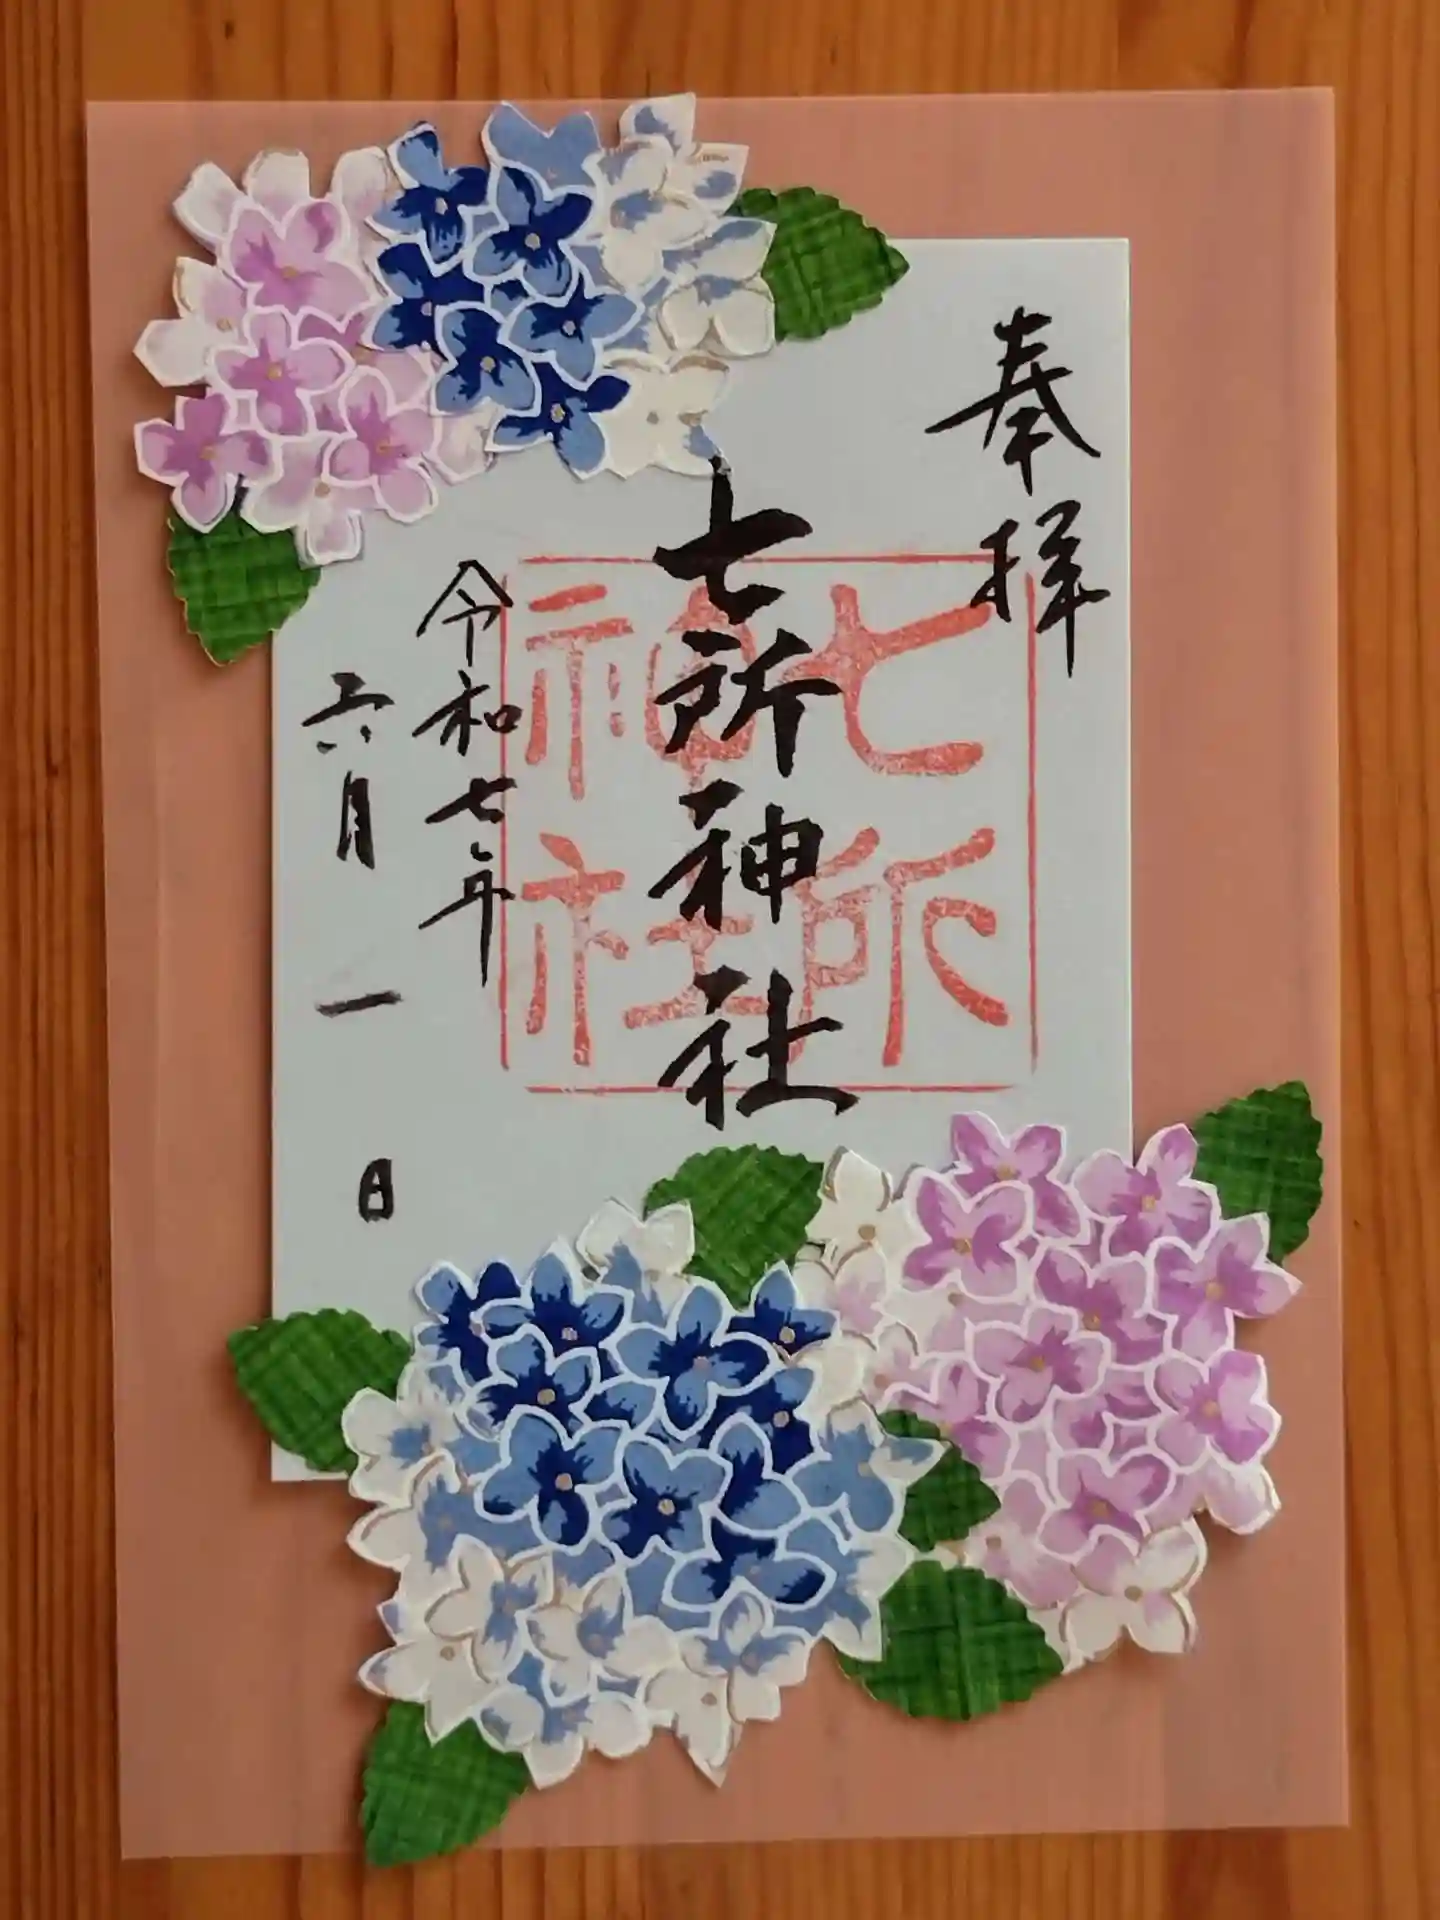 奉拝
七所神社
七所
神社
令和七年
六月一日